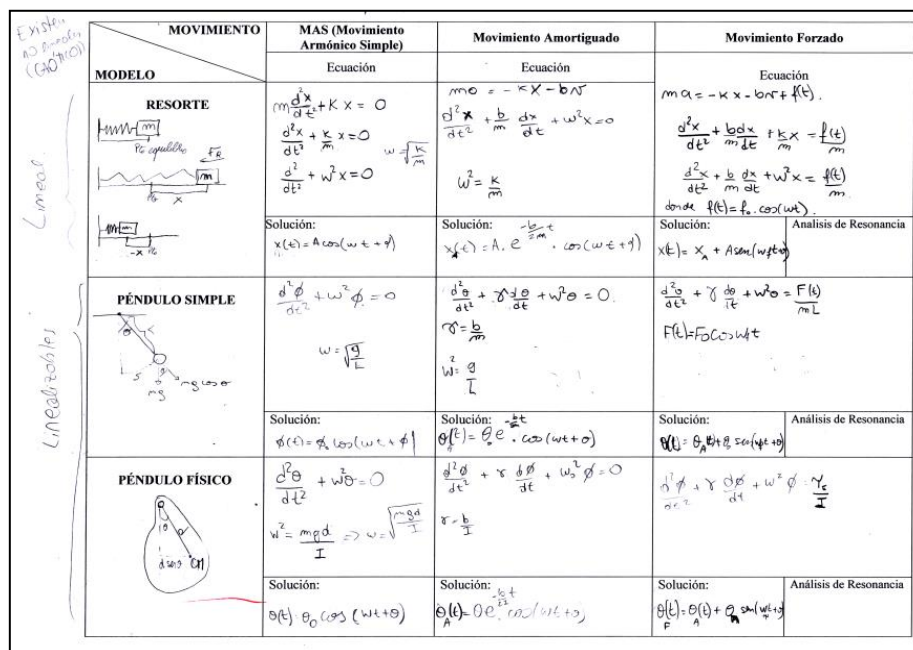 Existen
no lineales
(CAÓTICO)
Lineal
Linealizables
MOVIMIENTO
MODELO
MAS (Movimiento
Armónico Simple)
Movimiento Amortiguado
Movimiento Forzado
Ecuación
Ecuación
Ecuación
RESORTE
m
Pto equilibrio
F_R
m
x
m
-x
m d²x/dt² + K x = 0
d²x/dt² + K/m x = 0
w = √(K/m)
d²/dt² + w² x = 0
ma = -Kx - bv
d²x/dt² + b/m dx/dt + w²x = 0
w² = K/m
ma = -Kx - bv + f(t).
d²x/dt² + b/m dx/dt + K/m x = f(t)/m
d²x/dt² + b/m dx/dt + w²x = f(t)/m
donde f(t) = f₀.cos(wt).
Solución:
x(t) = A cos(wt + φ)
Solución:
x_A(t) = A. e^(-b/2m t) . cos(wt + φ)
Solución:
x(t) = x_A + A sen(w_f t + θ)
Analisis de Resonancia
PÉNDULO SIMPLE
θ
L
s
mg
mg cos θ
d²φ/dt² + w²φ = 0
w = √(g/L)
d²θ/dt² + γ dθ/dt + w²θ = 0.
γ = b/m
w² = g/L
d²θ/dt² + γ dθ/dt + w²θ = F(t)/mL
F(t) = F₀ cos w_f t
Solución:
φ(t) = φ₀ cos(wt + φ)
Solución:
Solución:
Análisis de Resonancia
PÉNDULO FÍSICO
θ
d
d sen θ
CM
d²θ/dt² + w²θ = 0
w² = mgd/I => w = √(mgd/I)
d²φ/dt² + γ dφ/dt + w₀²φ = 0
γ = b/I
d²φ/dt² + γ dφ/dt + w²φ =
Solución:
θ(t) = θ₀ cos (wt + θ)
Solución:
Solución:
Análisis de Resonancia